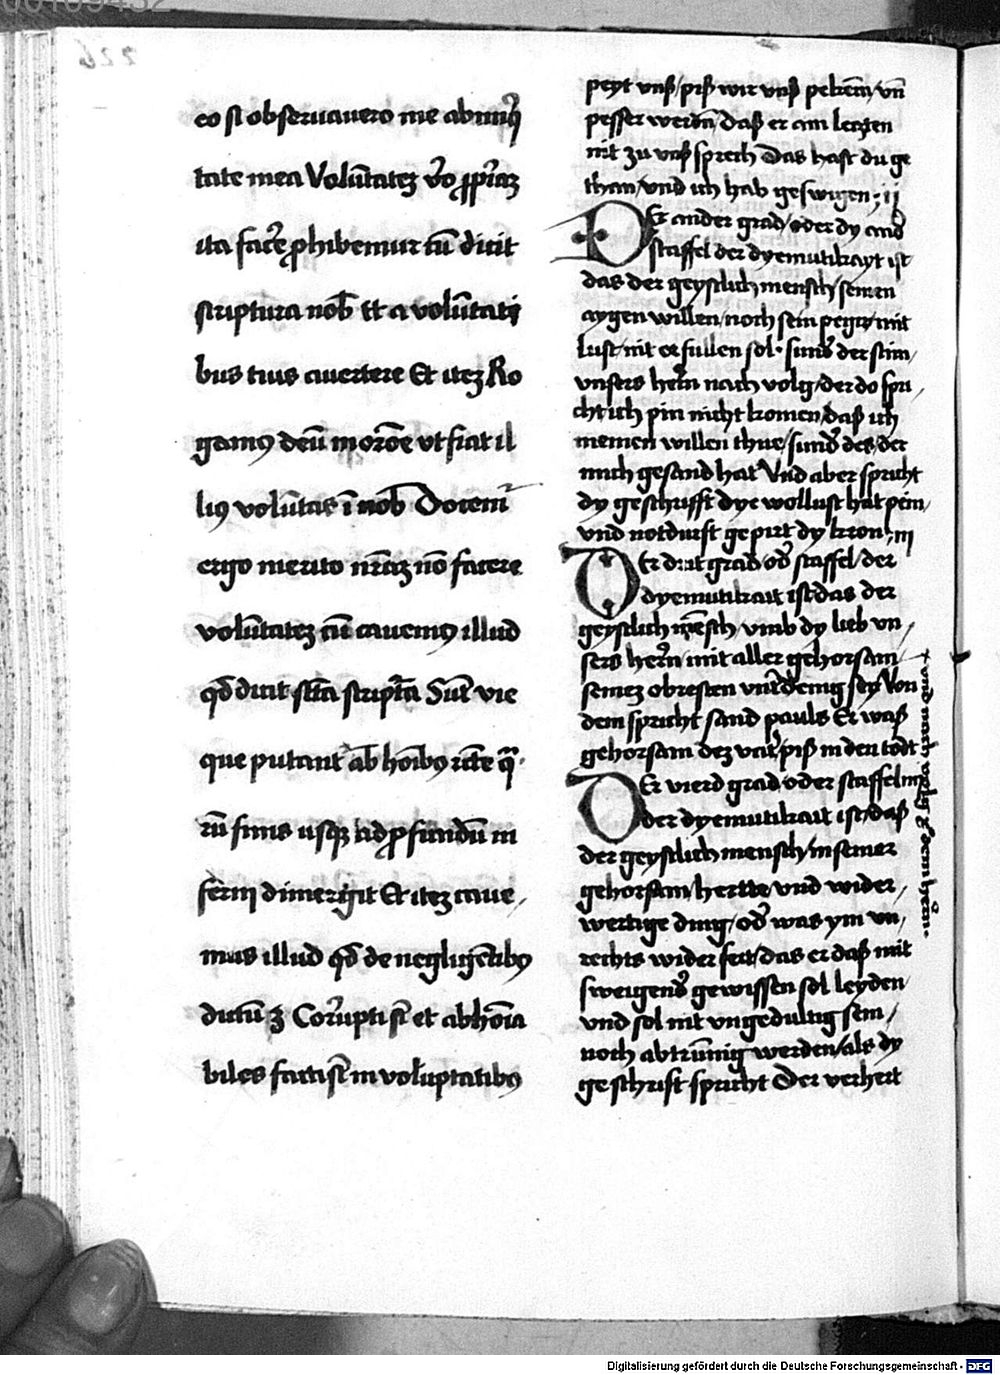 226
eo si obseruauero me ab iniq̄
tate mea Volūtateʒ ꝟo ꝓpͥaʒ
ita facē ꝓhibemur cū dicit
scriptura nob̄ Et a volūtatꝭ
bus tuis auertere Et iteʒ Ro
gamꝯ deū in or̄one vt fiat il
liꝯ volūtas ī nob̄ Docem̄
ergo merito nr̄aʒ nō facere
volūtateʒ cū cauemꝯ illud
qd̄ dicit sc̄ta scripta Sūt vie
que putant ab hōibꝯ r̄cte qͣ
rū finis usqʒ ad ꝓfundū in
ferni dimergit Et iteʒ caue
mus illud qd̄ de negligētibꝯ
dictū ʒ Corrupti sī et abhōia
biles facti sī in voluptatibꝯ
peyt vnß/piß wir vnß pekern/vn̄
pesser werdn̄/daß er am leczten
nit zu vnß sprech Das hast du ge
than/vnd ich hab geswigen; ii
Der ander grad/oder dy and
staffel der dyemutikayt ist
das der geystlich mensch/seinen
aygen willen/noch sein pegir/mit
lust/nit erfullen sol· sund̄ der stim/
vnsers hern̄ nach volg/der do spri/
cht ich pin nicht komen/daß ich
meinen willen thue/sund̄ des/der
mich gesand hat Vnd aber spricht
dy geschrifft dye wollust hat pein/
vnd notdurft gepirt dy kron; iii
Der drit grad/od̄ staffel/der
dyemutikait ist/das der
geystlich mensch/vmb dy lieb vn/
sers hern̄/mit aller gehorsam
seineʒ obresten vnterdenig sey Von
dem spricht sand pauls Er waß
gehorsam deʒ vater/piß in den todt
Der vierd grad/oder staffel iiii
der dyemutikait ist/daß
der geystlich mensch/in seiner
gehorsam/hertte/vnd wider/
wertige ding/od̄ was ym vn/
rechts wider fert/das er daß mit
sweigend̄ gewissen sol leyden/
vnd sol nit vngedultig sein/
noch abtrūnnig werden/als dy
geschrift spricht Der verhert
+ vnd nach volg dem hern̄·
Digitalisierung gefördert durch die Deutsche Forschungsgemeinschaft - DFG